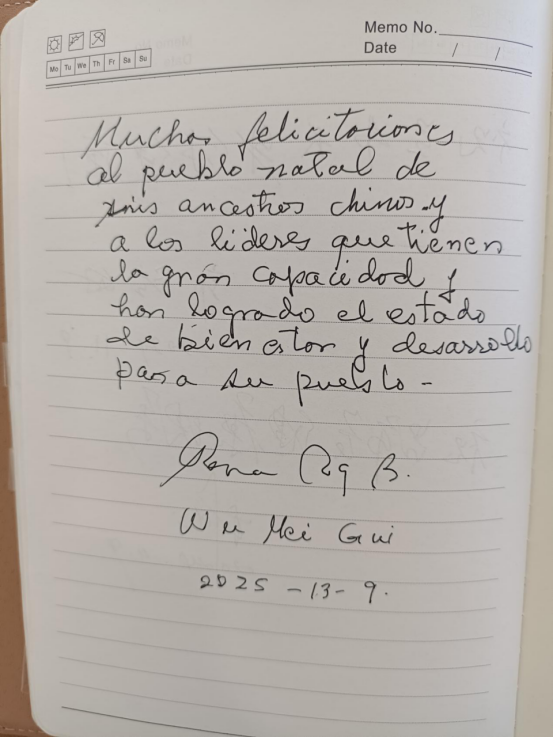 Memo No.
Mo Tu We Th Fr Sa Su
Date / /
Muchas felicitaciones
al pueblo natal de
mis ancestros chinos y
a los líderes que tienen
la gran capacidad y
han logrado el estado
de bien estar y desarrollo
para su pueblo -
B.
Wu Mei Gui
2025 - 13 - 9.